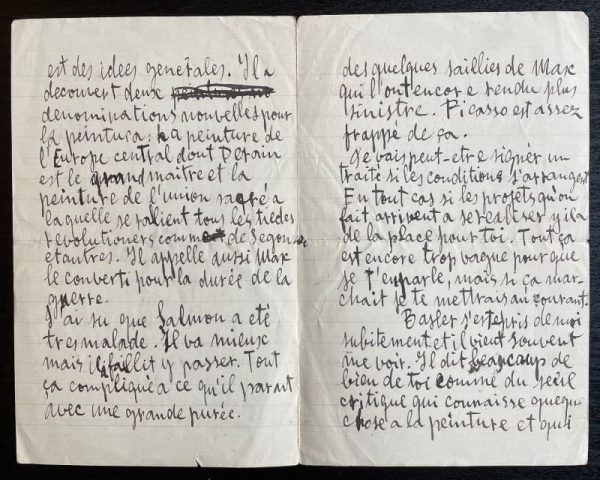 est des idees generales. Il a
decouvert deux
denominations nouvelles pour
la peintura: La peinture de
l'Europe central dont Derain
est le grand maitre et la
peinture de l'union sacré a
laquelle se ralient tous les tiedes
revolutioners comme de Segonzac
et autres. Il appelle aussi Max
le converti pour la durée de la
guerre.
J'ai su que Salmon a eté
tres malade. Il va mieux
mais il a faillit y passer. Tout
ça compliqué a ce qu'il parait
avec une grande purée.
des quelques saillies de Max
qui l'ont encore rendu plus
sinistre. Picasso est assez
frappe de ça.
Je vais peut-etre signer un
traite si les conditions s'arrangent
En tout cas si les projets qu'on
fait arrivent a se realiser y i la
de la place pour toi. Tout ça
est encore trop vague pour que
je t'en parle, mais si ça mar-
chait je te mettrais au courant.
Basler s'est epris de moi
subitement et il vient souvent
me voir. Il dit beaucoup de
bien de toi comme du seul
critique qui connaisse quequa
chose a la peinture et qu'i